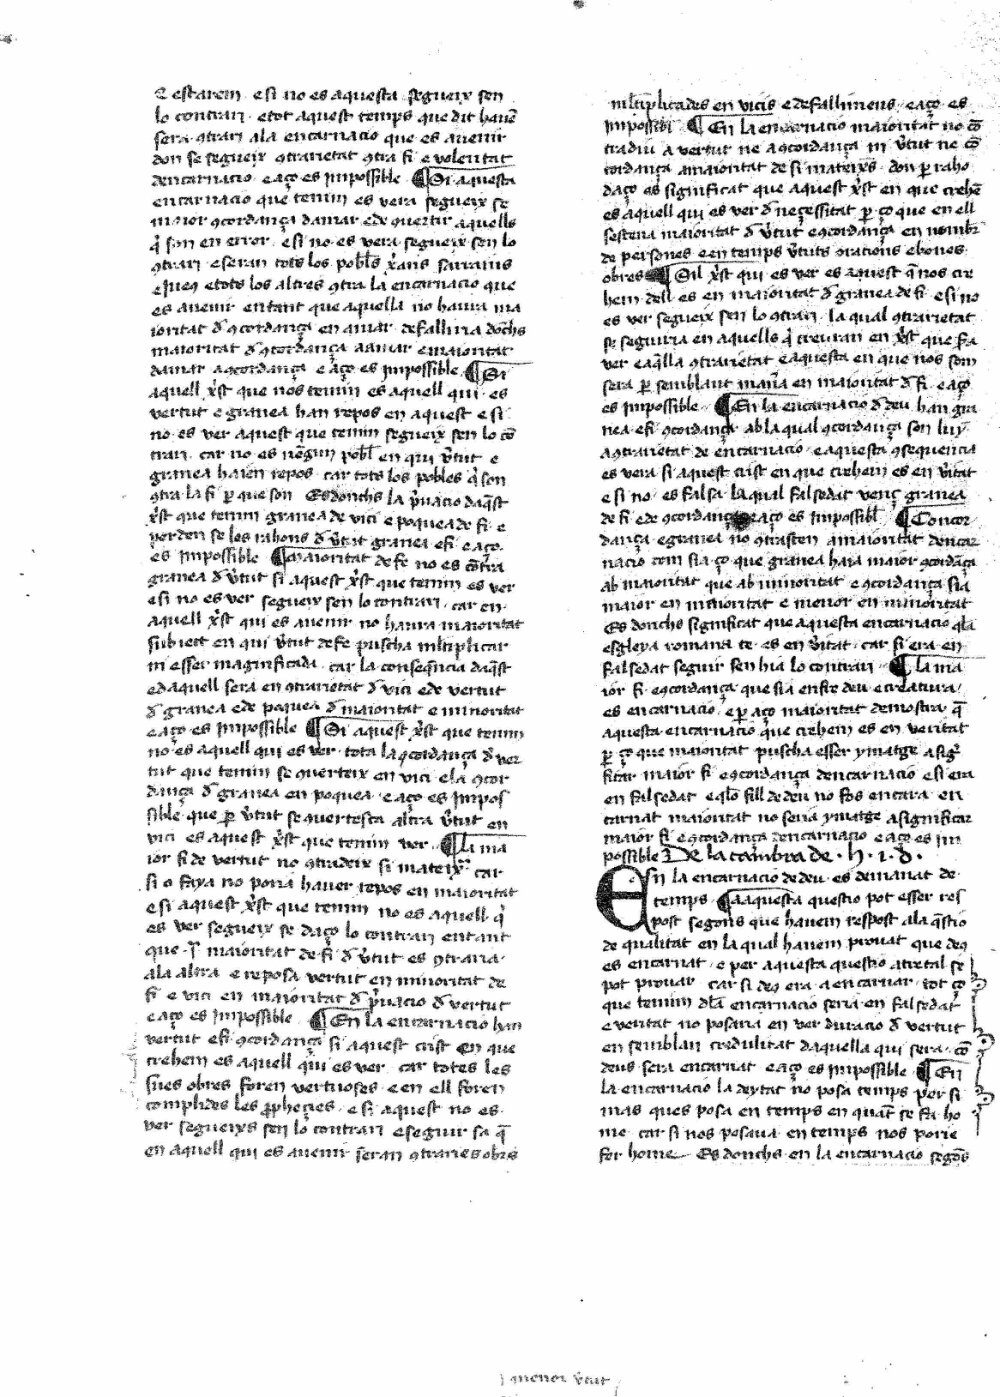 Z estarem · e si no es aquesta · segueix sen
lo contrari · e tot aquest temps que dit havē
sera 9trari a la encarnacio que es avenir
don se segueix 9trarietat 9tra fi e volentat
dencarnacio · e aço es impossible ¶ Si aquesta
encarnacio que tenim es vera segueix se
maior 9cordança damar e de 9vertir aquells
q̄ son en error · e si no es vera · segueix sen lo
9trari e seran tots los pobl̄s x̄ans sarrains
e jueus e tots los altres 9tra la encarnacio que
es avenir en tant que aquella no haura ma
ioritat d̄ 9cordança en amar · defallira donchs
maioritat d̄ 9cordança a amar e maioritat
damar a 9cordança e aço es impossible ¶ Si
aquell x̄st que nos tenim es aquell qui · es ·
vertut e granea han repos en aquest e si
no · es ver aquest que tenim segueix sen lo cō
trari · car no es negun pobl̄ en qui v̄tut · e
granea haien repos · car tots los pobles q̄ son
9tra la fi p̄ que son · Es donchs la p̄vacio daq̄st
x̄st que tenim granea de vici e poquea de fi · e
perden se los rahons d̄ v̄tut granea e fi · e aço
es impossible ¶ maioritat de fe no es cōtra
granea d̄ v̄tut si aquest x̄st que tenim es ver
e si no es ver segueix sen lo contrari · car en
aquell x̄st qui es avenir no haura maioritat
subiect en qui v̄tut de fe puscha ml̄tiplicar
ni esser magnificada · car la conseq̄ncia daq̄st
e daquell sera en 9trarietat d̄ vici e de vertut
d̄ granea e de poquea d̄ maioritat e minoritat
e aço es impossible ¶ Si aquest x̄st que tenim
no · es aquell qui es ver · tota la 9cordança d̄ ver
tut que tenim se 9verteix en vici e la 9cor
dança d̄ granea en poquea · e aço es impos
sible · que p̄ v̄tut se 9vertesca altra v̄tut en
vici · es aquest x̄st que tenim ver · ¶ La ma
ior fi de vertut no 9tradeix si mateix · car
si o faya no poria haver repos en maioritat
e si aquest x̄st que tenim no es aquell q̄
es ver segueix se daço lo contrari en tant
que · j̄ maioritat de fi d̄ v̄tut es 9traria
a la altra · e reposa vertut en minoritat de
fi · e vici en maioritat d̄ p̄vacio d̄ vertut
e aço es impossible ¶ En la encarnacio han
vertut e fi 9cordança si aquest crist en que
crehem es aquell qui es ver · car totes les
sues obres foren vertuoses · e en ell foren
complides les p̄phecies · e si aquest no es ·
ver segueixs sen lo contrari e seguir sa q̄
en aquell qui es avenir seran 9traries obres
ml̄tiplicades en vicis e defallimens · e aço es
impossibl ¶ En la encarnacio maioritat no cō
tradiu a vertut ne a 9cordança ni v̄tut ne cō
cordança a maioritat de si mateixs · don p̄ raho
daço es significat que aquest x̄st en que crehē
es aquell qui es ver d̄ necessitat p̄ ço que en ell
sostena maioritat d̄ v̄tut e 9cordança en nombr̄
de persones e en temps v̄tuts oracions e bones ·
obres ¶ Si l x̄st qui es ver es aquest q̄ nos cre
hem · dell es en maioritat d̄ granea de fi · e si no
es ver segueix sen lo 9trari · la qual 9trarietat
se seguiria en aquells q̄ creuran en x̄st que fa
ver e aq̄lla 9trarietat e aquesta en que nos som
sera p̄ semblant man̄a en maioritat d̄ fi · e aço
es impossible ¶ En la encarnacio d̄ deu · han gra
nea e fi 9cordança ab la qual 9cordança son luy
a 9trarietat de encarnacio · e aquesta 9sequencia
es vera si aquest crist en que crehem es en v̄itat
e si no · es falsa · la qual falsedat venç granea
de fi e de 9cordança e aço es impossibl̄ ¶ Concor
dança e granea no 9trasten a maioritat dencar
nacio com sia ço que granea haia maior 9cordāça
ab maioritat que ab minoritat e 9cordança sia
maior en minoritat e menor en minoritat
Es donchs significat que aquesta encarnacio q̄ la
esgleya romana te · es en v̄itat · car si era en
falsedat seguir sen hia lo contrari · ¶ La ma
ior fi e 9cordança que sia entre deu e creatura ·
es encarnacio · e p̄ aço maioritat demostra q̄
aquesta encarnacio que crehem es en veritat
p̄ ço que maioritat puscha esser ymatge a sig̈
ficar maior fi e 9cordança dencarnacio · e si era
en falsedat e q̄ lo fill de deu no fos encara · en
carnat maioritat no seria ymatge a significar
maior fi · e 9cordança dencarnacio e aço es im
possible De la cambra de · h · i · d ·
En la encarnacio de deu · es demanat de
temps · ¶ A aquesta questio pot esser res
post segons que havem respost a la q̄stio
de qualitat en la qual havem provat que de9
es encarnat · e per aquesta questio atretal se
pot provar · car si de9 era · a encarnar · tot ço
que tenim dl̄a encarnacio seria en falsedat
e veritat no posaria en ver duracio d̄ vertut
en semblan credulitat daquella qui sera · cō
deus sera encarnat · e aço es impossible ¶ En
la encarnacio la deytat no posa temps per si
mas que s posa en temps en quant se fa ho
me · car si nos posava · en temps nos poria
fer home · Es donchs · en la encarnacio segōs
menor v̄tut